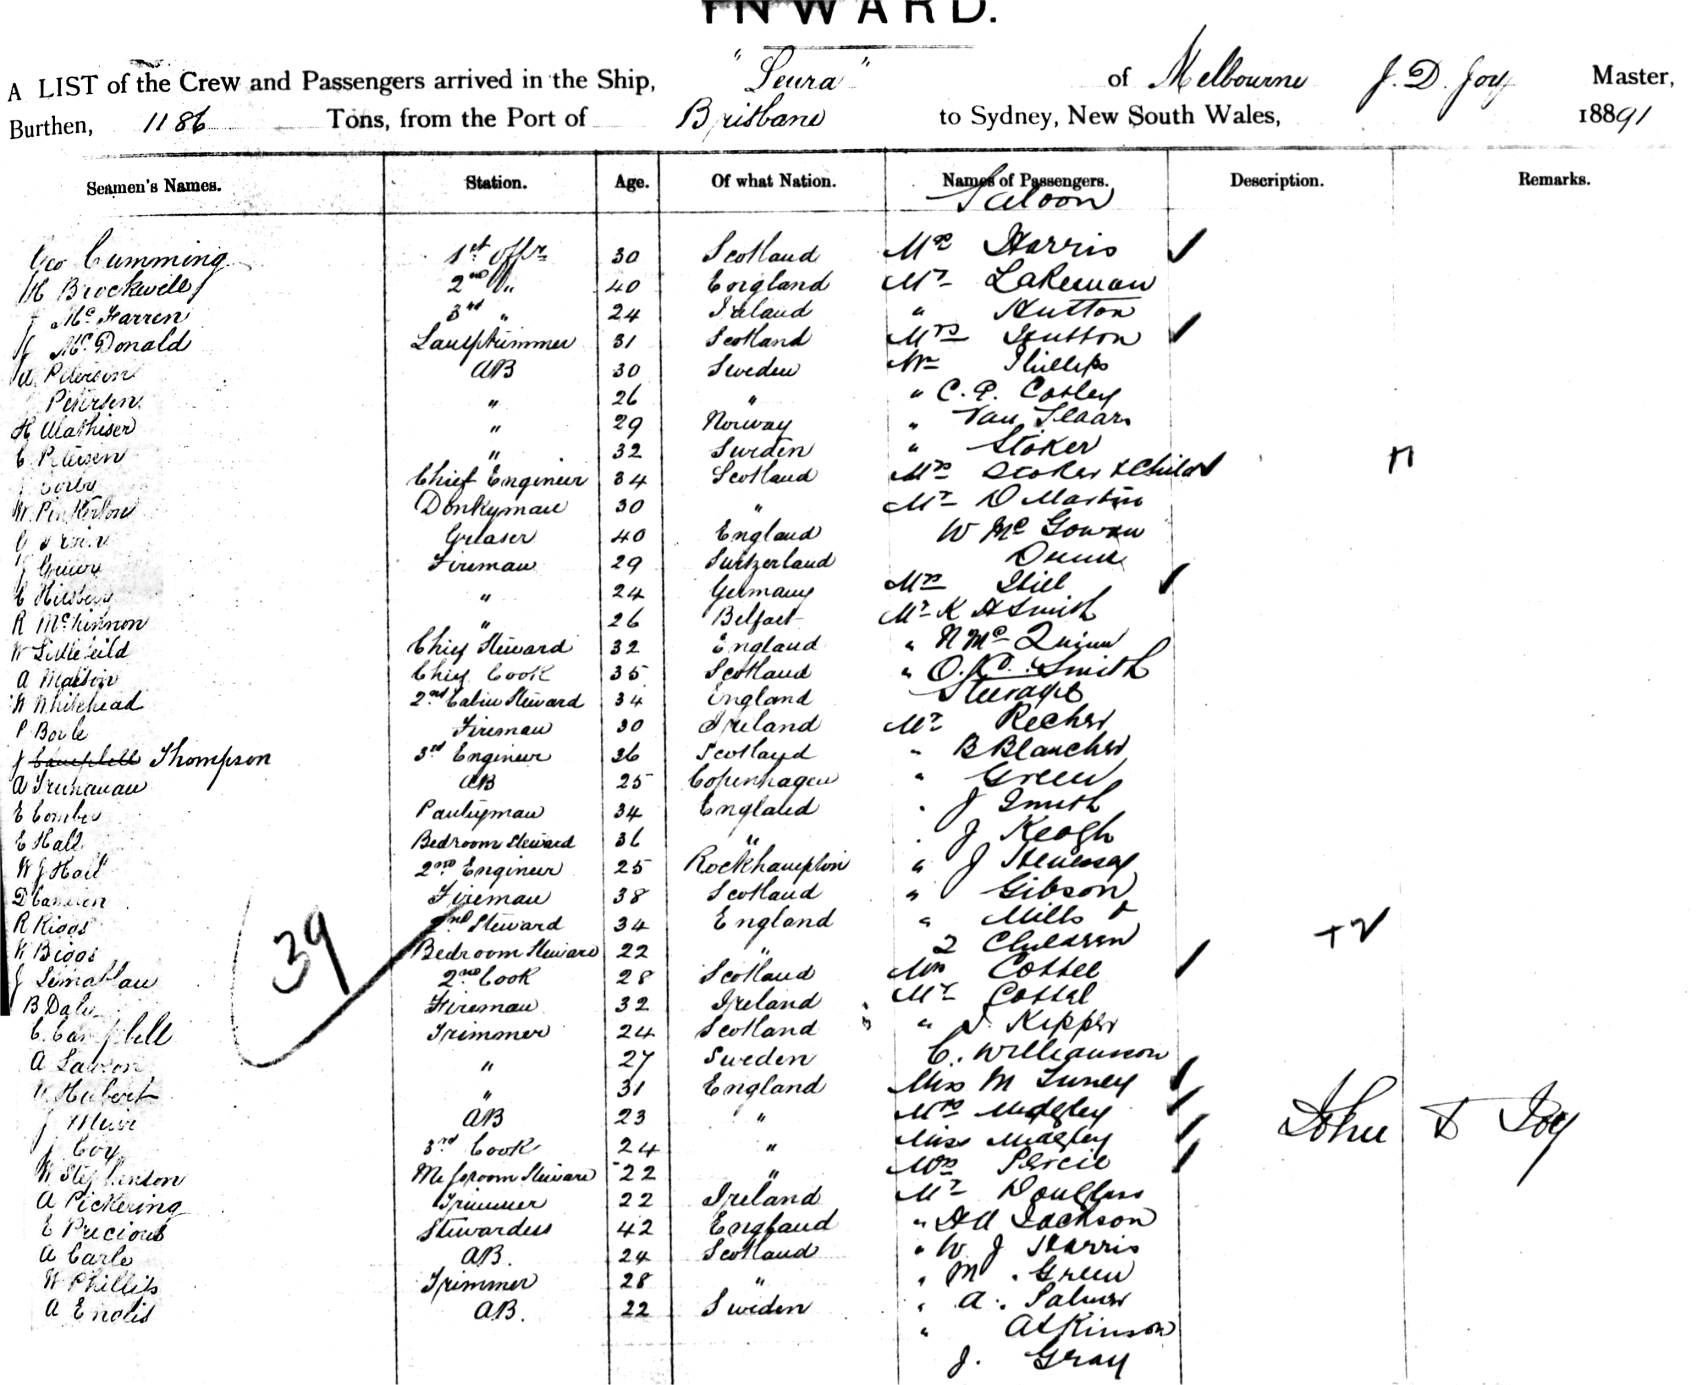 INWARD.
A LIST of the Crew and Passengers arrived in the Ship, "Leura" of Melbourne J. D. Joy Master,
Burthen, 1186 Tons, from the Port of Brisbane to Sydney, New South Wales, 18891
Seamen's Names. Station. Age. Of what Nation. Names of Passengers. Description. Remarks.
Saloon
Geo Cumming 1st Offr 30 Scotland Mrs Harris
H Brockwell 2nd " 40 England Mr Lakeman
J McFarren 3rd " 24 Ireland " Hutton
J McDonald Lamptrimmer 31 Scotland Mrs Hutton
A Peterson AB 30 Sweden Mr Phillips
Petersen " 26 " " C. P. Corley
H Mathiser " 29 Norway " Van
C Petersen " 32 Sweden " Stoker
J Chief Engineer 34 Scotland Mrs Stoker & Child n
W. Pinkerton Donkyman 30 " Mr D Martin
Greaser 40 England W McGowan
J Fireman 29 Switzerland Dunne
C " 24 Germany Mrs Hill
R McKinnon " 26 Belfast Mr K A Smith
W Littlefield Chief Steward 32 England " N McQuinn
A Malton Chief Cook 35 Scotland " O. Smith
W Whitehead 2nd Cabin Steward 34 England Steerage
P Boyle Fireman 30 Ireland Mr Recher
J Campbell Thompson 3rd Engineer 36 Scotland " B Blancher
A AB 25 Copenhagen " Green
E Comber Pantryman 34 England . J Smith
E Hall Bedroom Steward 36 " . J Keogh
W J Hall 2nd Engineer 25 Rockhampton " J
D Cameron Fireman 38 Scotland " Gibson
R Riggs 2nd Steward 34 England " Mills &
K Biggs Bedroom Steward 22 " 2 Children +2
39
J 2nd Cook 28 Scotland Mrs Cottee
B Daly Fireman 32 Ireland Mr Cottel
C. Campbell Trimmer 24 Scotland " J. Kipper
A Lawson " 27 Sweden C. Williamson
W Hubert " 31 England Miss M Tuney
J Muir AB 23 " Mrs Midgley
J Coy 3rd Cook 24 " Miss Midgley John D Joy
W Stephenson Messroom Steward 22 " Mrs Percie
A Pickering Trimmer 22 Ireland Mr Douglass
E Precious Stewardess 42 England " H A Jackson
A Carle AB. 24 Scotland " W J Harris
W Phillips Trimmer 28 " " M. Green
A Englis AB. 22 Sweden " A. Palmer
" Atkinson
J. Gray